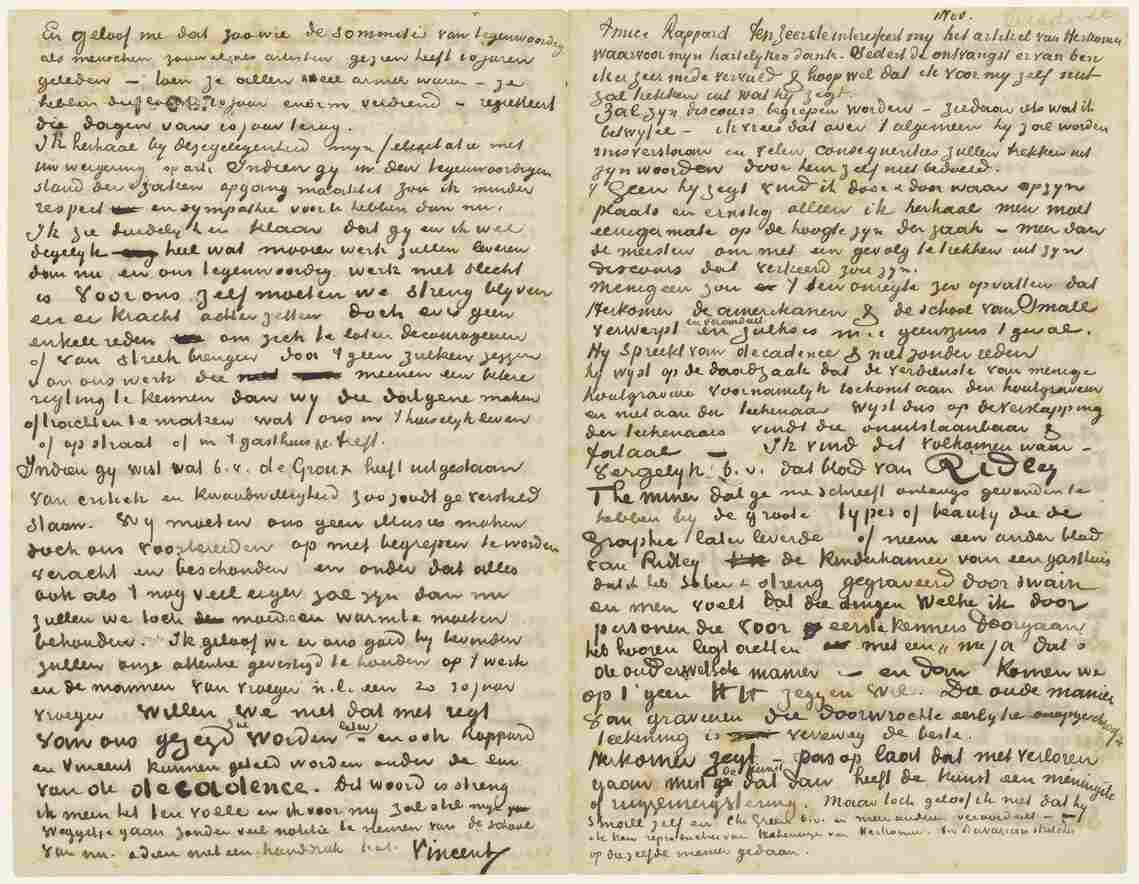 En geloof me dat zoo wie de sommités van tegenwoordig
als menschen zoowel als artisten gezien heeft 10 jaren
geleden – toen ze allen veel armer waren – ze
hebben 10 jaar enorm verdiend – regretteert
die dagen van 10 jaar terug.
Ik herhaal by deze gelegenheid myn felicitatie met
uw weigering op arti Indien gy in den tegenwoordigen
stand der zaken opgang maaktet zou ik minder
respect en sympathie voor U hebben dan nu.
Ik zie duidelyk en klaar dat gy en ik wel
degelyk heel wat mooier werk zullen leveren
dan nu, en ons tegenwoordig werk niet slecht
is voor ons zelf moeten we streng blyven
en er kracht achter zetten doch er is geen
enkele reden om zich te laten decourageeren
of van streek brengen door 't geen zulken zeggen
van ons werk die meenen een betere
regting te kennen dan wy die datgene maken
of trachten te maken wat ons in 't huiselyk leven
of op straat of in 't gasthuis &c treft.
Indien gy wist wat b.v. de Groux heeft uitgestaan
van critiek en kwaadwilligheid zoo zoudt ge versteld
staan. Wy moeten ons geen illusies maken
doch ons voorbereiden op niet begrepen te worden
veracht en beschonden en onder dat alles
ook als 't nog veel erger zal zyn dan nu
zullen we toch moed en warmte moeten
behouden. Ik geloof we er ons goed by bevinden
zullen onze attentie gevestigd te houden op 't werk
en de mannen van vroeger n.l. een 20 30 jaar
vroeger willen we niet dat met regt
van ons gezegd zal worden later – en ook Rappard
en Vincent kunnen geteld worden onder de lui
van de decadence. Dit woord is streng
ik meen het ten volle en ik voor my zal stil myn
weggetje gaan zonder veel notitie te nemen van de school
van nu. adieu met een handdruk Vincent
Nov.
Amice Rappard Ten zeerste interesseert my het artikel van Herkomer
waarvoor myn hartelyken dank. Sedert de ontvangst ervan ben
ik er zeer mede vervuld & hoop wel dat ik voor my zelf nut
zal trekken uit wat hy zegt.
Zal zyn discours begrepen worden – ziedaar iets wat ik
betwyfel – ik vrees dat over 't algemeen hy zal worden
misverstaan en velen consequenties zullen trekken uit
zyn woorden door hem zelf niet bedoeld.
't Geen hy zegt vind ik door & door waar op zyn
plaats en ernstig alleen ik herhaal men moet
eenigermate op de hoogte zyn der zaak – meer dan
de meesten om niet een gevolg te trekken uit zyn
discours dat verkeerd zou zyn.
Menigeen zou 't ten onregte zoo opvatten dat
Herkomer de amerikanen & de school van Small
verwerpt en veroordeelt en zulks is m.i. geenszins 't geval.
Hy spreekt van decadence & niet zonder reden
hy wyst op de daadzaak dat de verdienste van menige
houtgravure voornamelyk toekomt aan den houtgraveur
en niet aan den teekenaar wyst dus op de verslapping
der teekenaars vindt die onuitstaanbaar &
fataal – Ik vind dit volkomen waar –
vergelyk b.v. dat blad van Ridley
The miner dat ge me schreeft onlangs gevonden te
hebben by de groote types of beauty die de
Graphic later leverde of neem een ander blad
van Ridley de Kinderkamer van een gasthuis
dat ik heb Sober & streng gegraveerd door Swain
en men voelt dat die dingen welke ik door
personen die voor eerste kenners doorgaan
heb hooren ter zy zetten met een „me ja dat is
de ouderwetsche manier – en dan komen we
op 't geen H H zeggen wil. Die oude manier
van graveeren die doorwrochte eerlyke onopgeschikte
teekening is verreweg de beste.
Herkomer zegt – pas op laat dat niet verloren
gaan mist de kunst dat dan heeft de kunst een meningite
of ruggemergstering. Maar toch geloof ik niet dat hy
Small zelf en Ch Green b.v. en meer andere veroordeelt –
ik ken reproducties van teekeningen van Herkomer. In Bavarian sketches
op diezelfde manier gedaan.